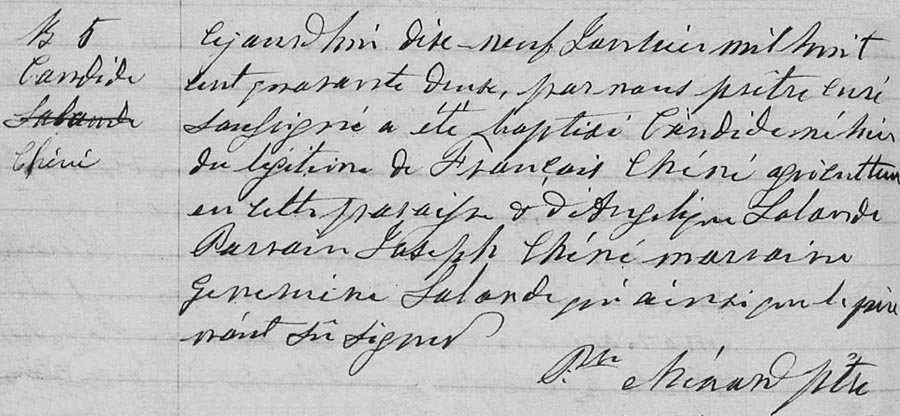 B 5
Candide
Lalande
Chéné
Cejourdhui dixe-neuf Janvier mil huit
cent quarante deux, par nous prêtre curé
soussigné a été baptisé Candide né hier
du légitime de François Chéné agriculteur
en cette paroisse & d'Angelique Lalande
Parrain Joseph Chéné marraine
Genevieve Lalande qui ainsi que le père
n'ont sû signer
P. Ménard ptre